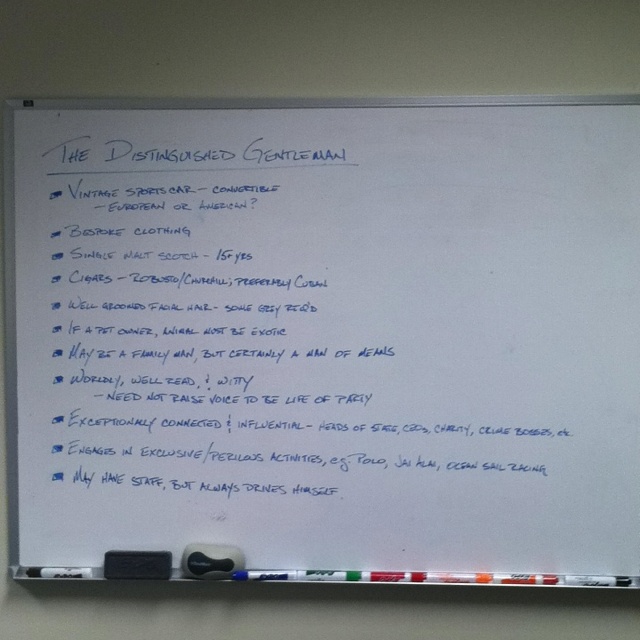 THE DISTINGUISHED GENTLEMAN
VINTAGE SPORTSCAR - CONVERTIBLE
- EUROPEAN OR AMERICAN?
BESPOKE CLOTHING
SINGLE MALT SCOTCH - 15+ YRS
CIGARS - ROBUSTO/CHURCHILL; PREFERABLY CUBAN
WELL GROOMED FACIAL HAIR - SOME GREY REQ'D
IF A PET OWNER, ANIMAL MUST BE EXOTIC
MAY BE A FAMILY MAN, BUT CERTAINLY A MAN OF MEANS
WORLDLY, WELL READ, & WITTY
- NEED NOT RAISE VOICE TO BE LIFE OF PARTY
EXCEPTIONALLY CONNECTED & INFLUENTIAL - HEADS OF STATE, CEOs, CHARITY, CRIME BOSSES, etc
ENGAGES IN EXCLUSIVE/PERILOUS ACTIVITIES, e.g. POLO, JAI ALAI, OCEAN SAIL RACING
MAY HAVE STAFF, BUT ALWAYS DRIVES HIMSELF.